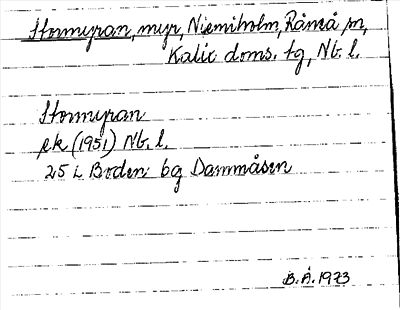 Stormyran, myr, Niemiholm, Råneå sn,
Kalix doms. tg, Nb. l.
Stormyran
ek (1951) Nb. l.
25 L Boden 6g Dammåsen
B. Å. 1973